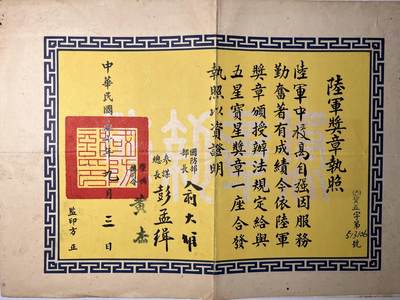 陸軍獎章執照
陸軍中校高自強因服務
勤奮著有成績令依陸軍
獎章頒授辦法規定給與
五星寶星獎章一座合發
執照以資證明
國防部
部長 俞大維
參謀
總長 彭孟緝
黃杰
中華民國 年九月三日
監印方正
字第
號